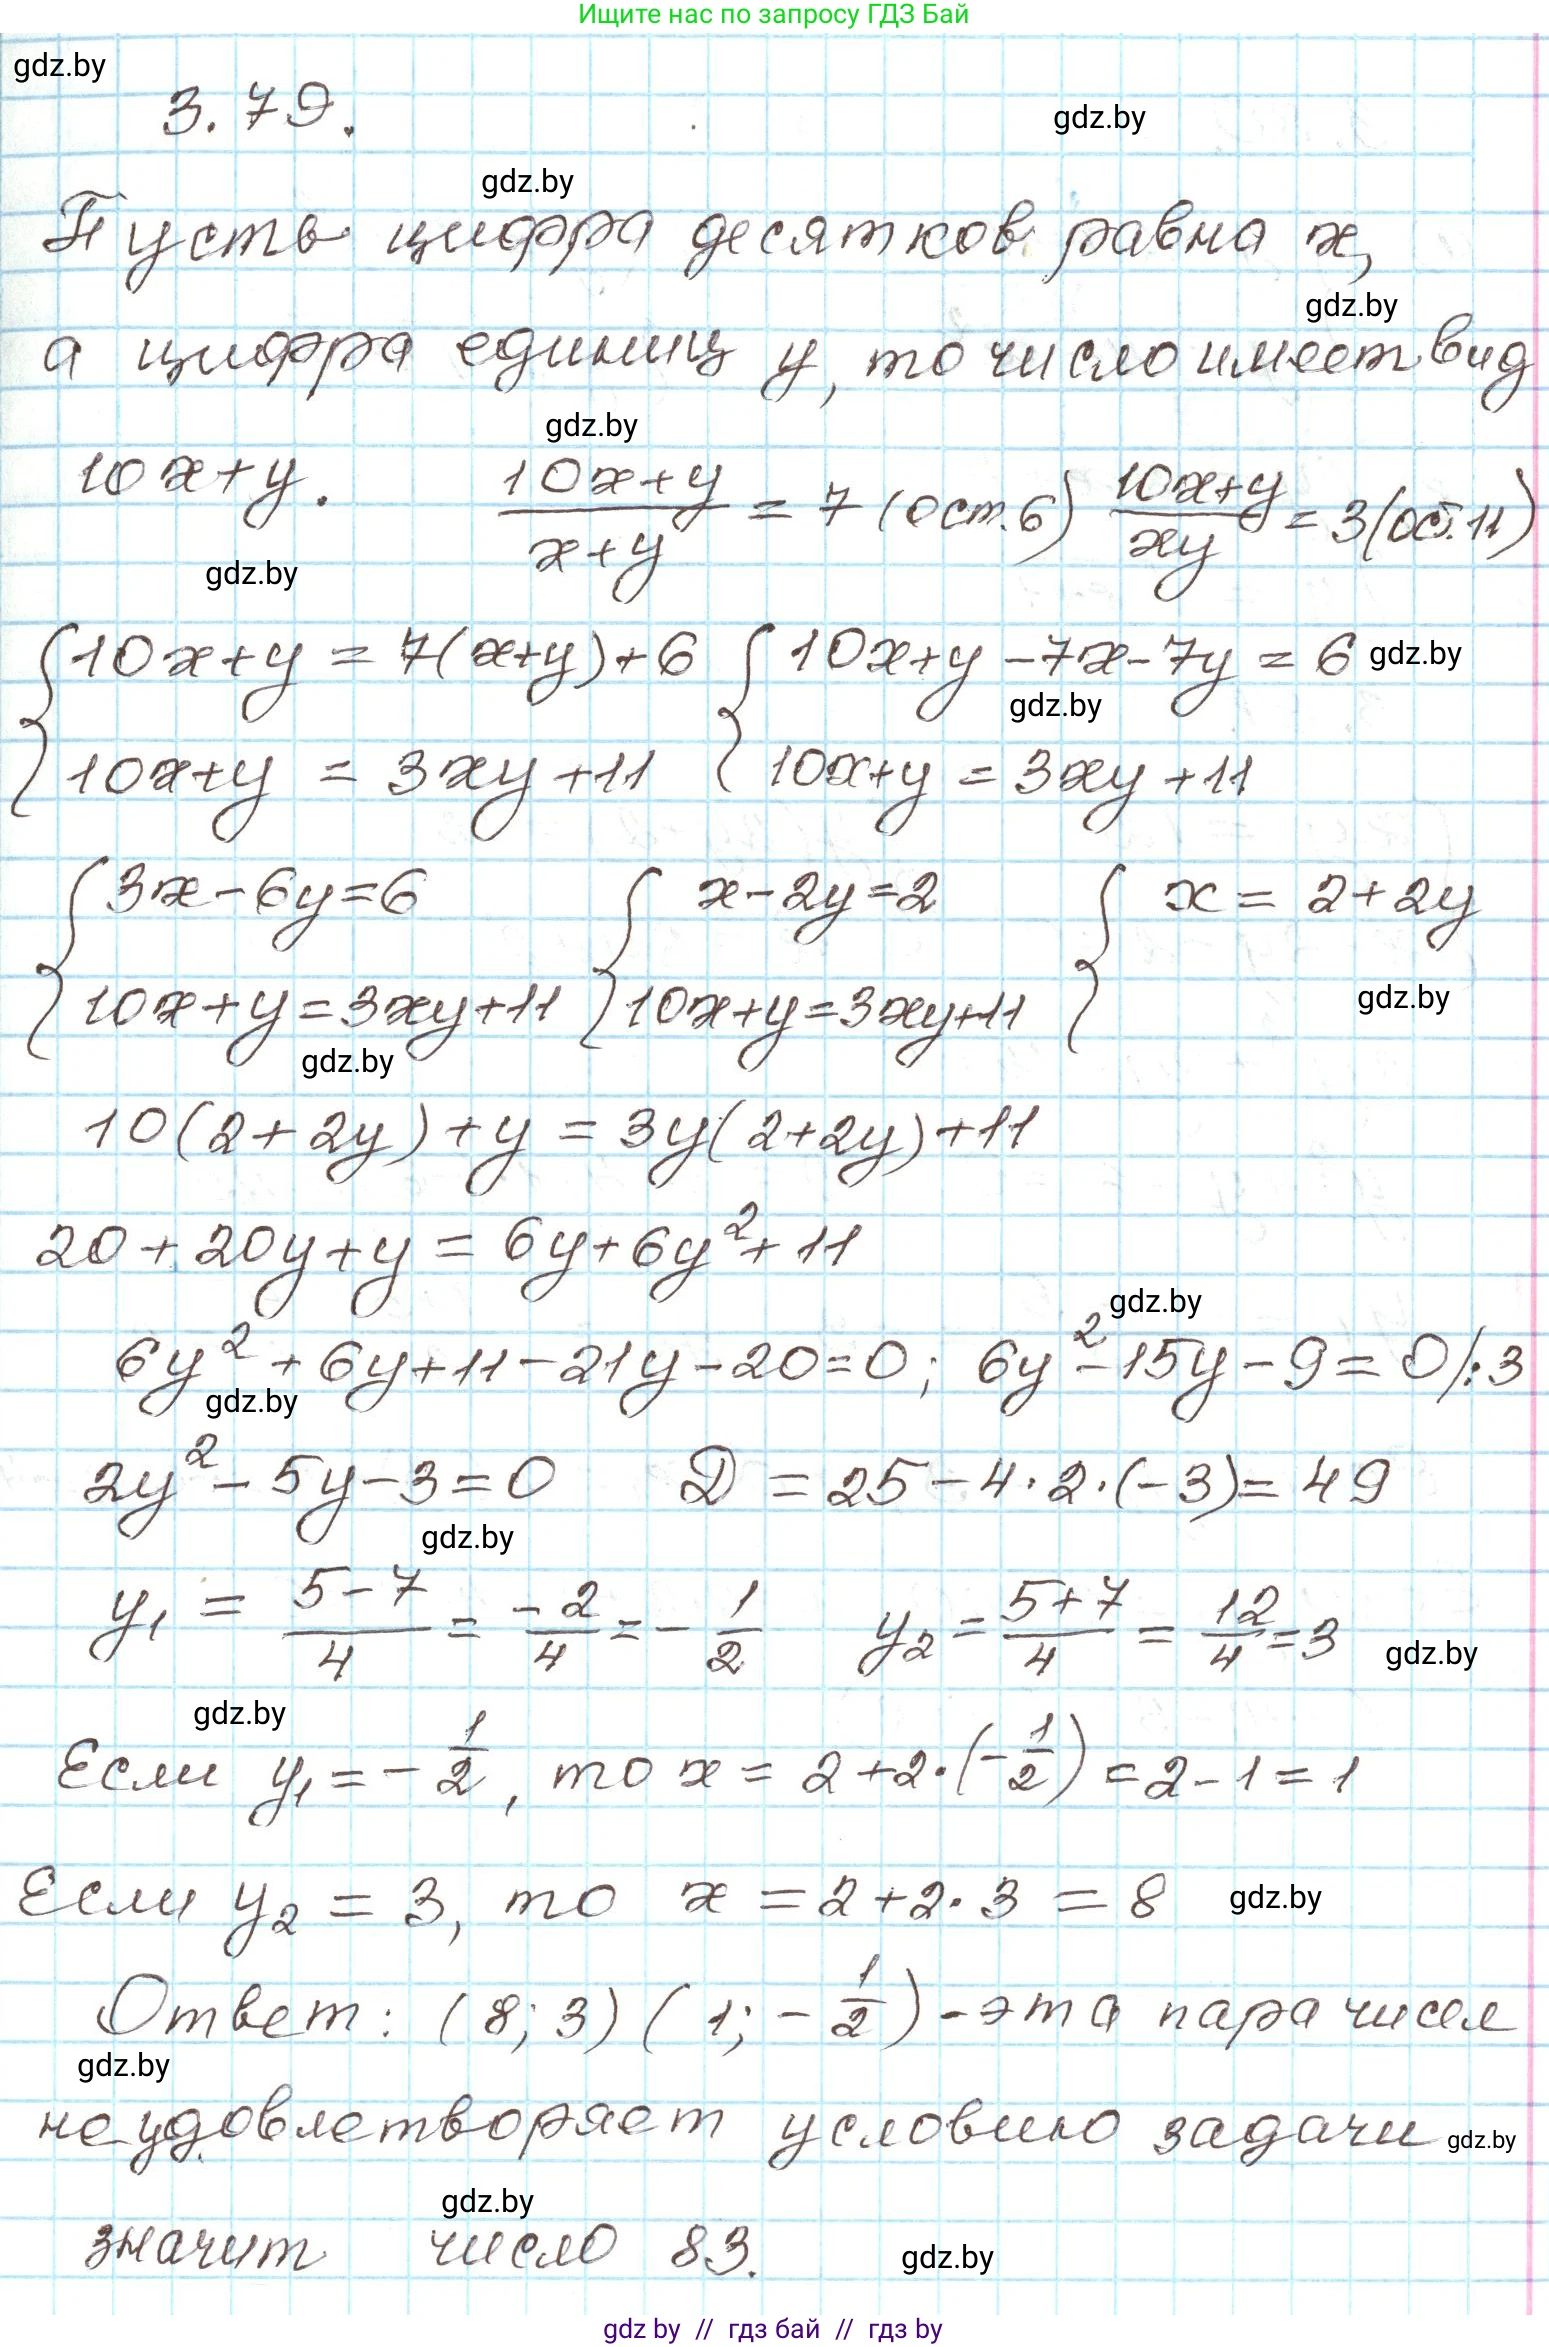 Ищите нас по запросу ГДЗ Бай
gdz.by
3.79.
gdz.by
gdz.by
Пусть цифра десятков равна x,
gdz.by
а цифра единиц y, то число имеет вид
gdz.by
10x+y. (10x+y)/(x+y) = 7 (ост.6) (10x+y)/(xy) = 3(ос.11)
gdz.by
{10x+y = 7(x+y)+6 {10x+y-7x-7y = 6 gdz.by
gdz.by
10x+y = 3xy+11 10x+y = 3xy+11
{3x-6y=6 {x-2y=2 {x = 2+2y
10x+y=3xy+11 10x+y=3xy+11 gdz.by
gdz.by
10(2+2y)+y = 3y(2+2y)+11
20+20y+y = 6y+6y²+11
gdz.by
6y²+6y+11-21y-20=0; 6y²-15y-9=0/:3
gdz.by
2y²-5y-3=0 D = 25-4·2·(-3)=49
gdz.by
y₁ = (5-7)/4 = -2/4 = -1/2 y₂ = (5+7)/4 = 12/4 = 3 gdz.by
gdz.by
Если y₁ = -1/2, то x = 2+2·(-1/2) = 2-1 = 1
Если y₂ = 3, то x = 2+2·3 = 8 gdz.by
Ответ: (8; 3) (1; -1/2) - эта пара чисел
gdz.by
не удовлетворяет условию задачи gdz.by
gdz.by
значит число 83. gdz.by
gdz by // гдз бай // гдз by